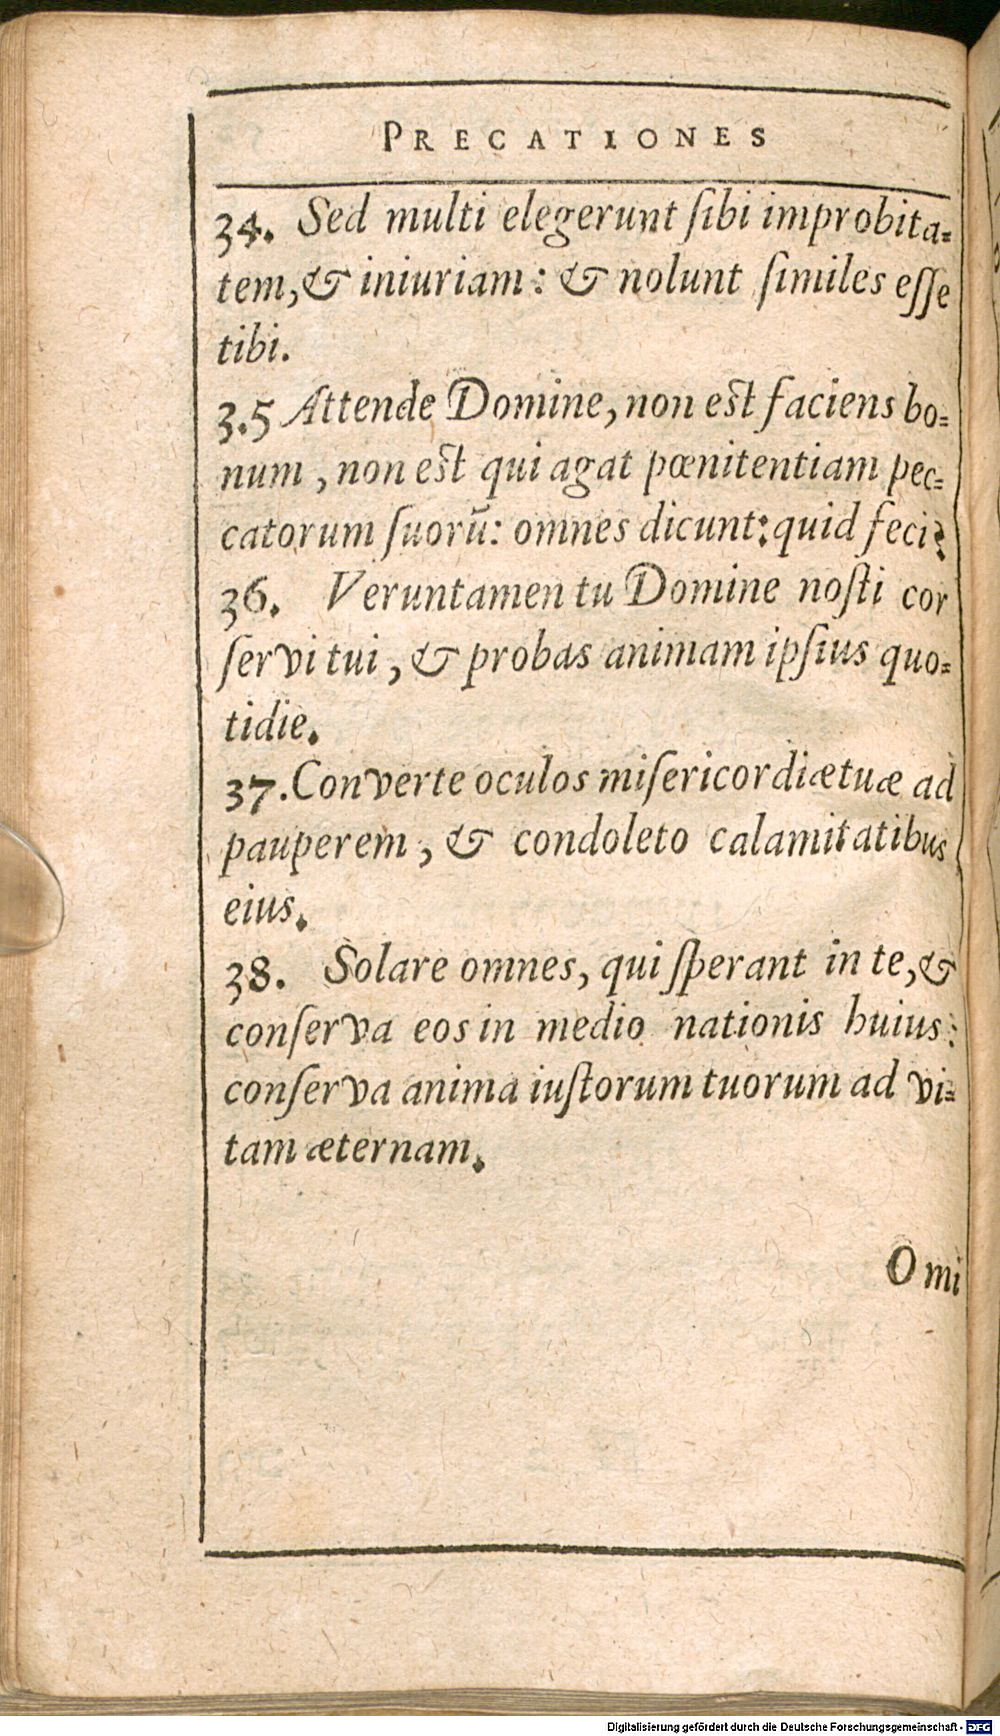 PRECATIONES
34. Sed multi elegerunt ſibi improbita-
tem, & iniuriam: & nolunt ſimiles eſſe
tibi.
3.5 Attende Domine, non eſt faciens bo-
num, non eſt qui agat pœnitentiam pec-
catorum ſuorũ: omnes dicunt: quid feci?
36. Veruntamen tu Domine noſti cor
ſervi tui, & probas animam ipſius quo-
tidie.
37. Converte oculos miſericordiætuæ ad
pauperem, & condoleto calamitatibus
eius.
38. Solare omnes, qui ſperant in te, &
conſerva eos in medio nationis huius:
conſerva anima iuſtorum tuorum ad vi-
tam æternam.
O mi
Digitalisierung gefördert durch die Deutsche Forschungsgemeinschaft - DFG